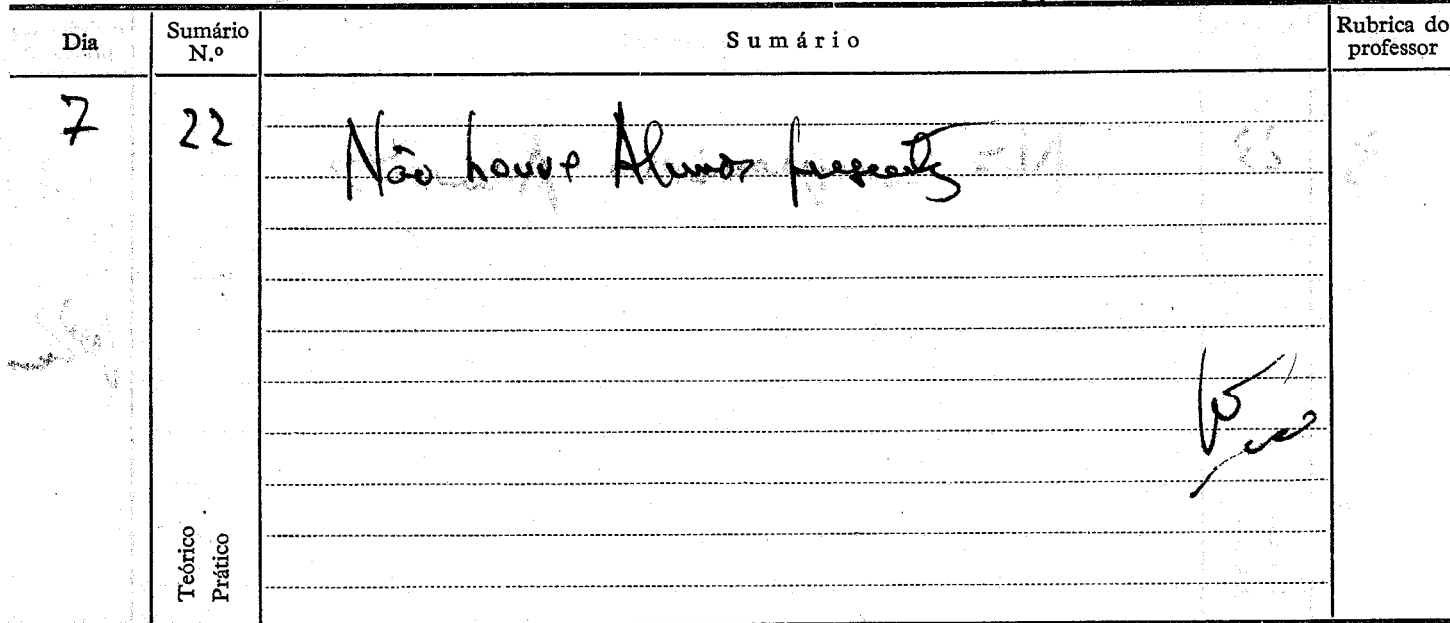 Dia
Sumário N.º
Sumário
Rubrica do professor
7
22
Não houve Alunos presentes
Teórico
Prático